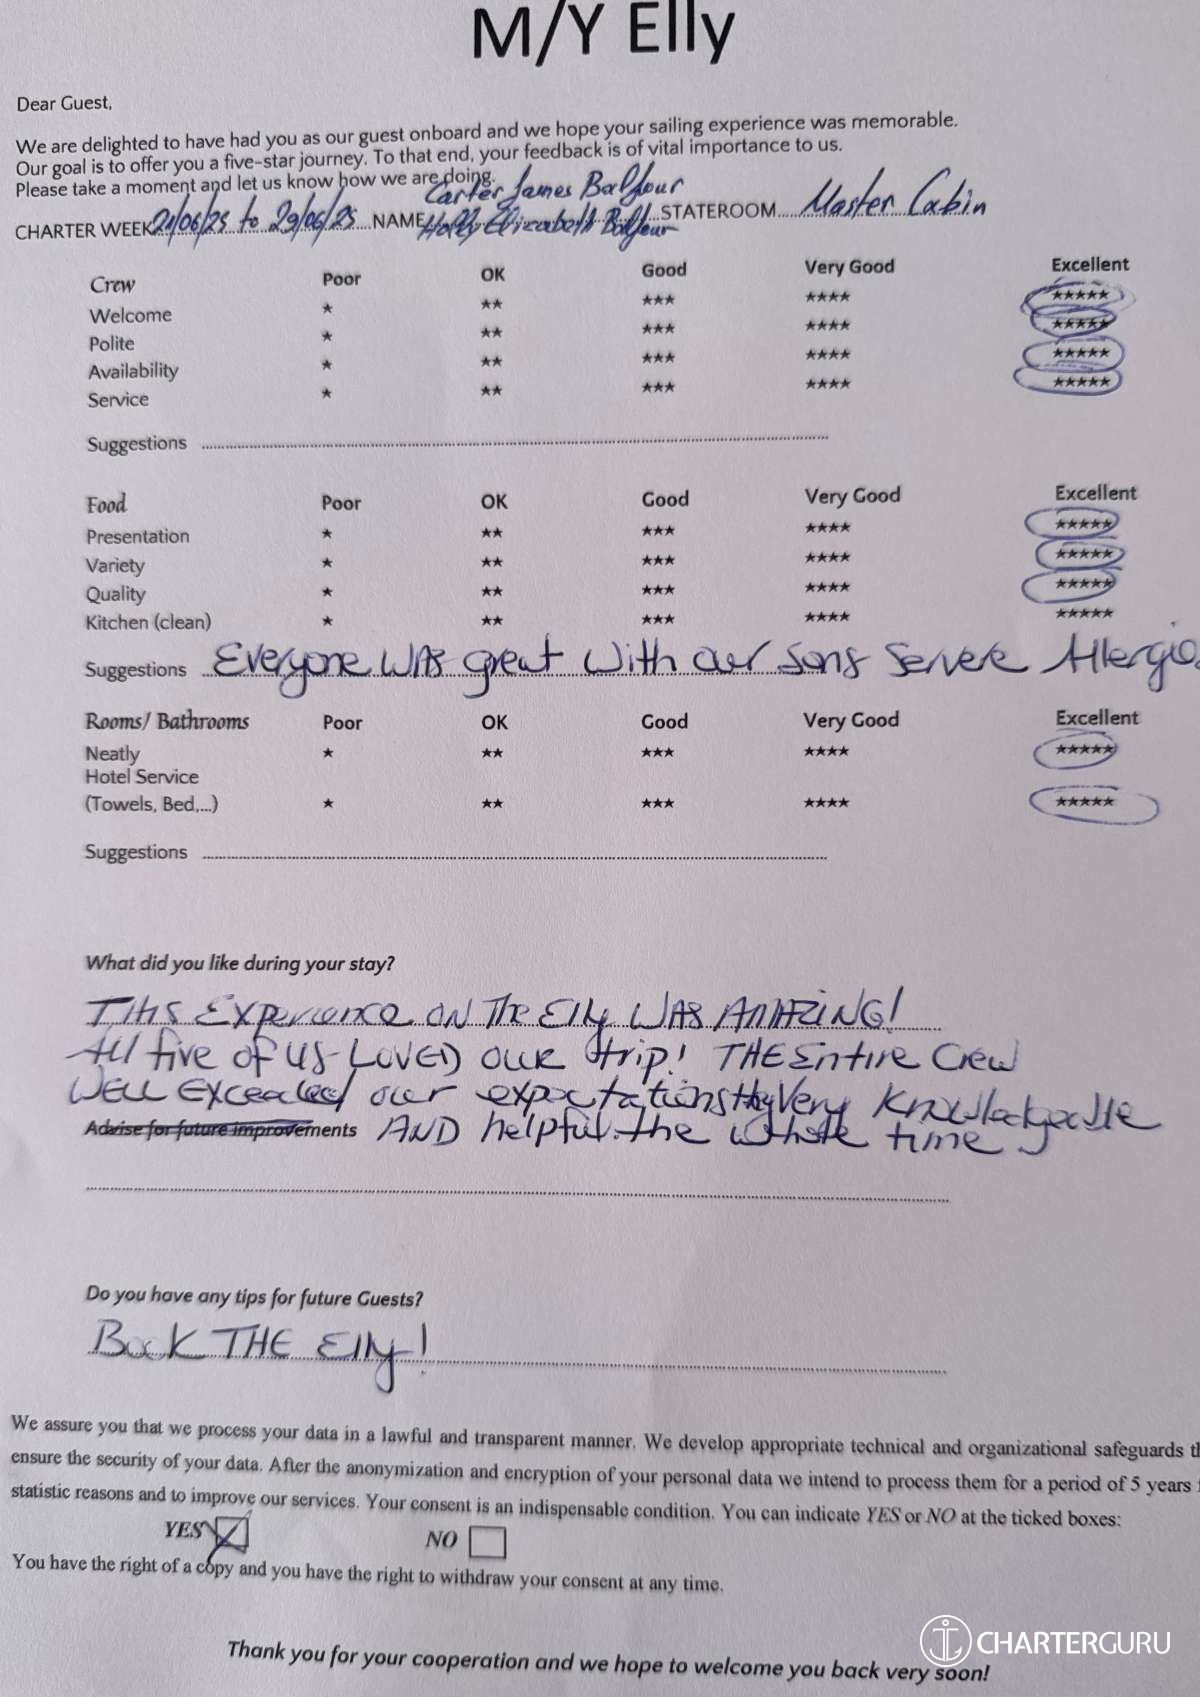 M/Y Elly
Dear Guest,
We are delighted to have had you as our guest onboard and we hope your sailing experience was memorable.
Our goal is to offer you a five-star journey. To that end, your feedback is of vital importance to us.
Please take a moment and let us know how we are doing.
Carter James Balfour
CHARTER WEEK 21/06/25 to 29/06/25 NAME Holly Elizabeth Balfour STATEROOM Master Cabin
Crew Poor OK Good Very Good Excellent
Welcome ★ ★★ ★★★ ★★★★ ★★★★★
Polite ★ ★★ ★★★ ★★★★ ★★★★★
Availability ★ ★★ ★★★ ★★★★ ★★★★★
Service ★ ★★ ★★★ ★★★★ ★★★★★
Suggestions
Food Poor OK Good Very Good Excellent
Presentation ★ ★★ ★★★ ★★★★ ★★★★★
Variety ★ ★★ ★★★ ★★★★ ★★★★★
Quality ★ ★★ ★★★ ★★★★ ★★★★★
Kitchen (clean) ★ ★★ ★★★ ★★★★ ★★★★★
Suggestions Everyone was great with our sons Servere Allergies
Rooms/ Bathrooms Poor OK Good Very Good Excellent
Neatly ★ ★★ ★★★ ★★★★ ★★★★★
Hotel Service
(Towels, Bed,...) ★ ★★ ★★★ ★★★★ ★★★★★
Suggestions
What did you like during your stay?
This Experience on The Elly WAS AMAZING!
All five of us LOVED our trip! THE Entire Crew
WELL Exceeded our expectations Very Knowledgeable
Advise for future improvements AND helpful the whole time
Do you have any tips for future Guests?
Book THE Elly!
We assure you that we process your data in a lawful and transparent manner. We develop appropriate technical and organizational safeguards
ensure the security of your data. After the anonymization and encryption of your personal data we intend to process them for a period of 5 years
statistic reasons and to improve our services. Your consent is an indispensable condition. You can indicate YES or NO at the ticked boxes:
YES NO
You have the right of a copy and you have the right to withdraw your consent at any time.
Thank you for your cooperation and we hope to welcome you back very soon!
CHARTERGURU